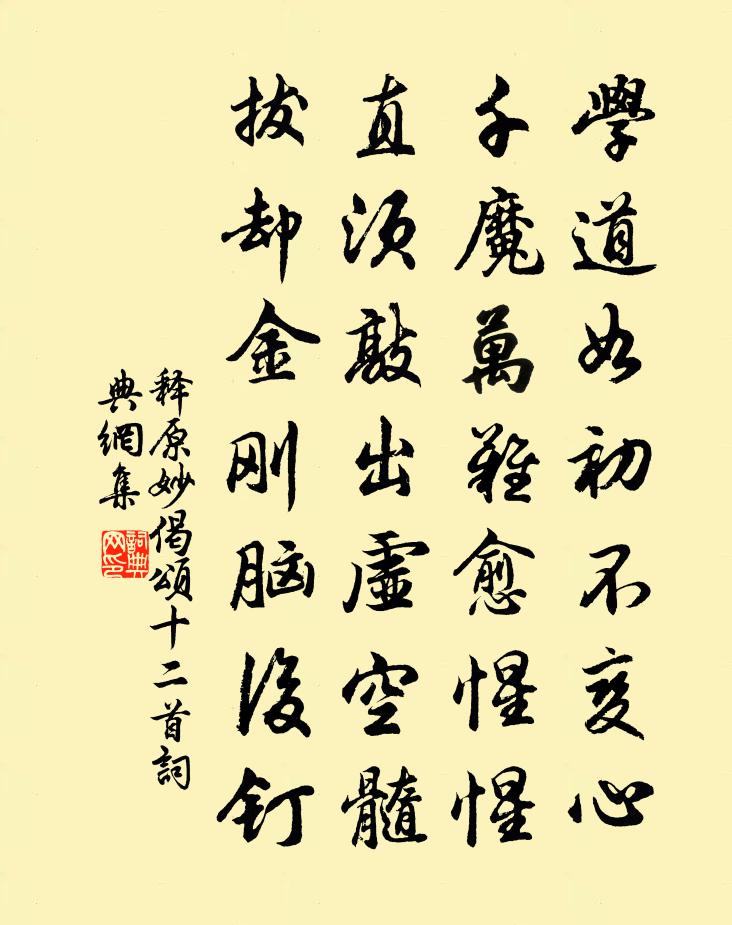 學道如初不变心
千魔萬難愈惺惺
直须敲出虛空髓
拔却金刚脑後钉
释原妙偈頌十二首詞
典網集
詞典网印